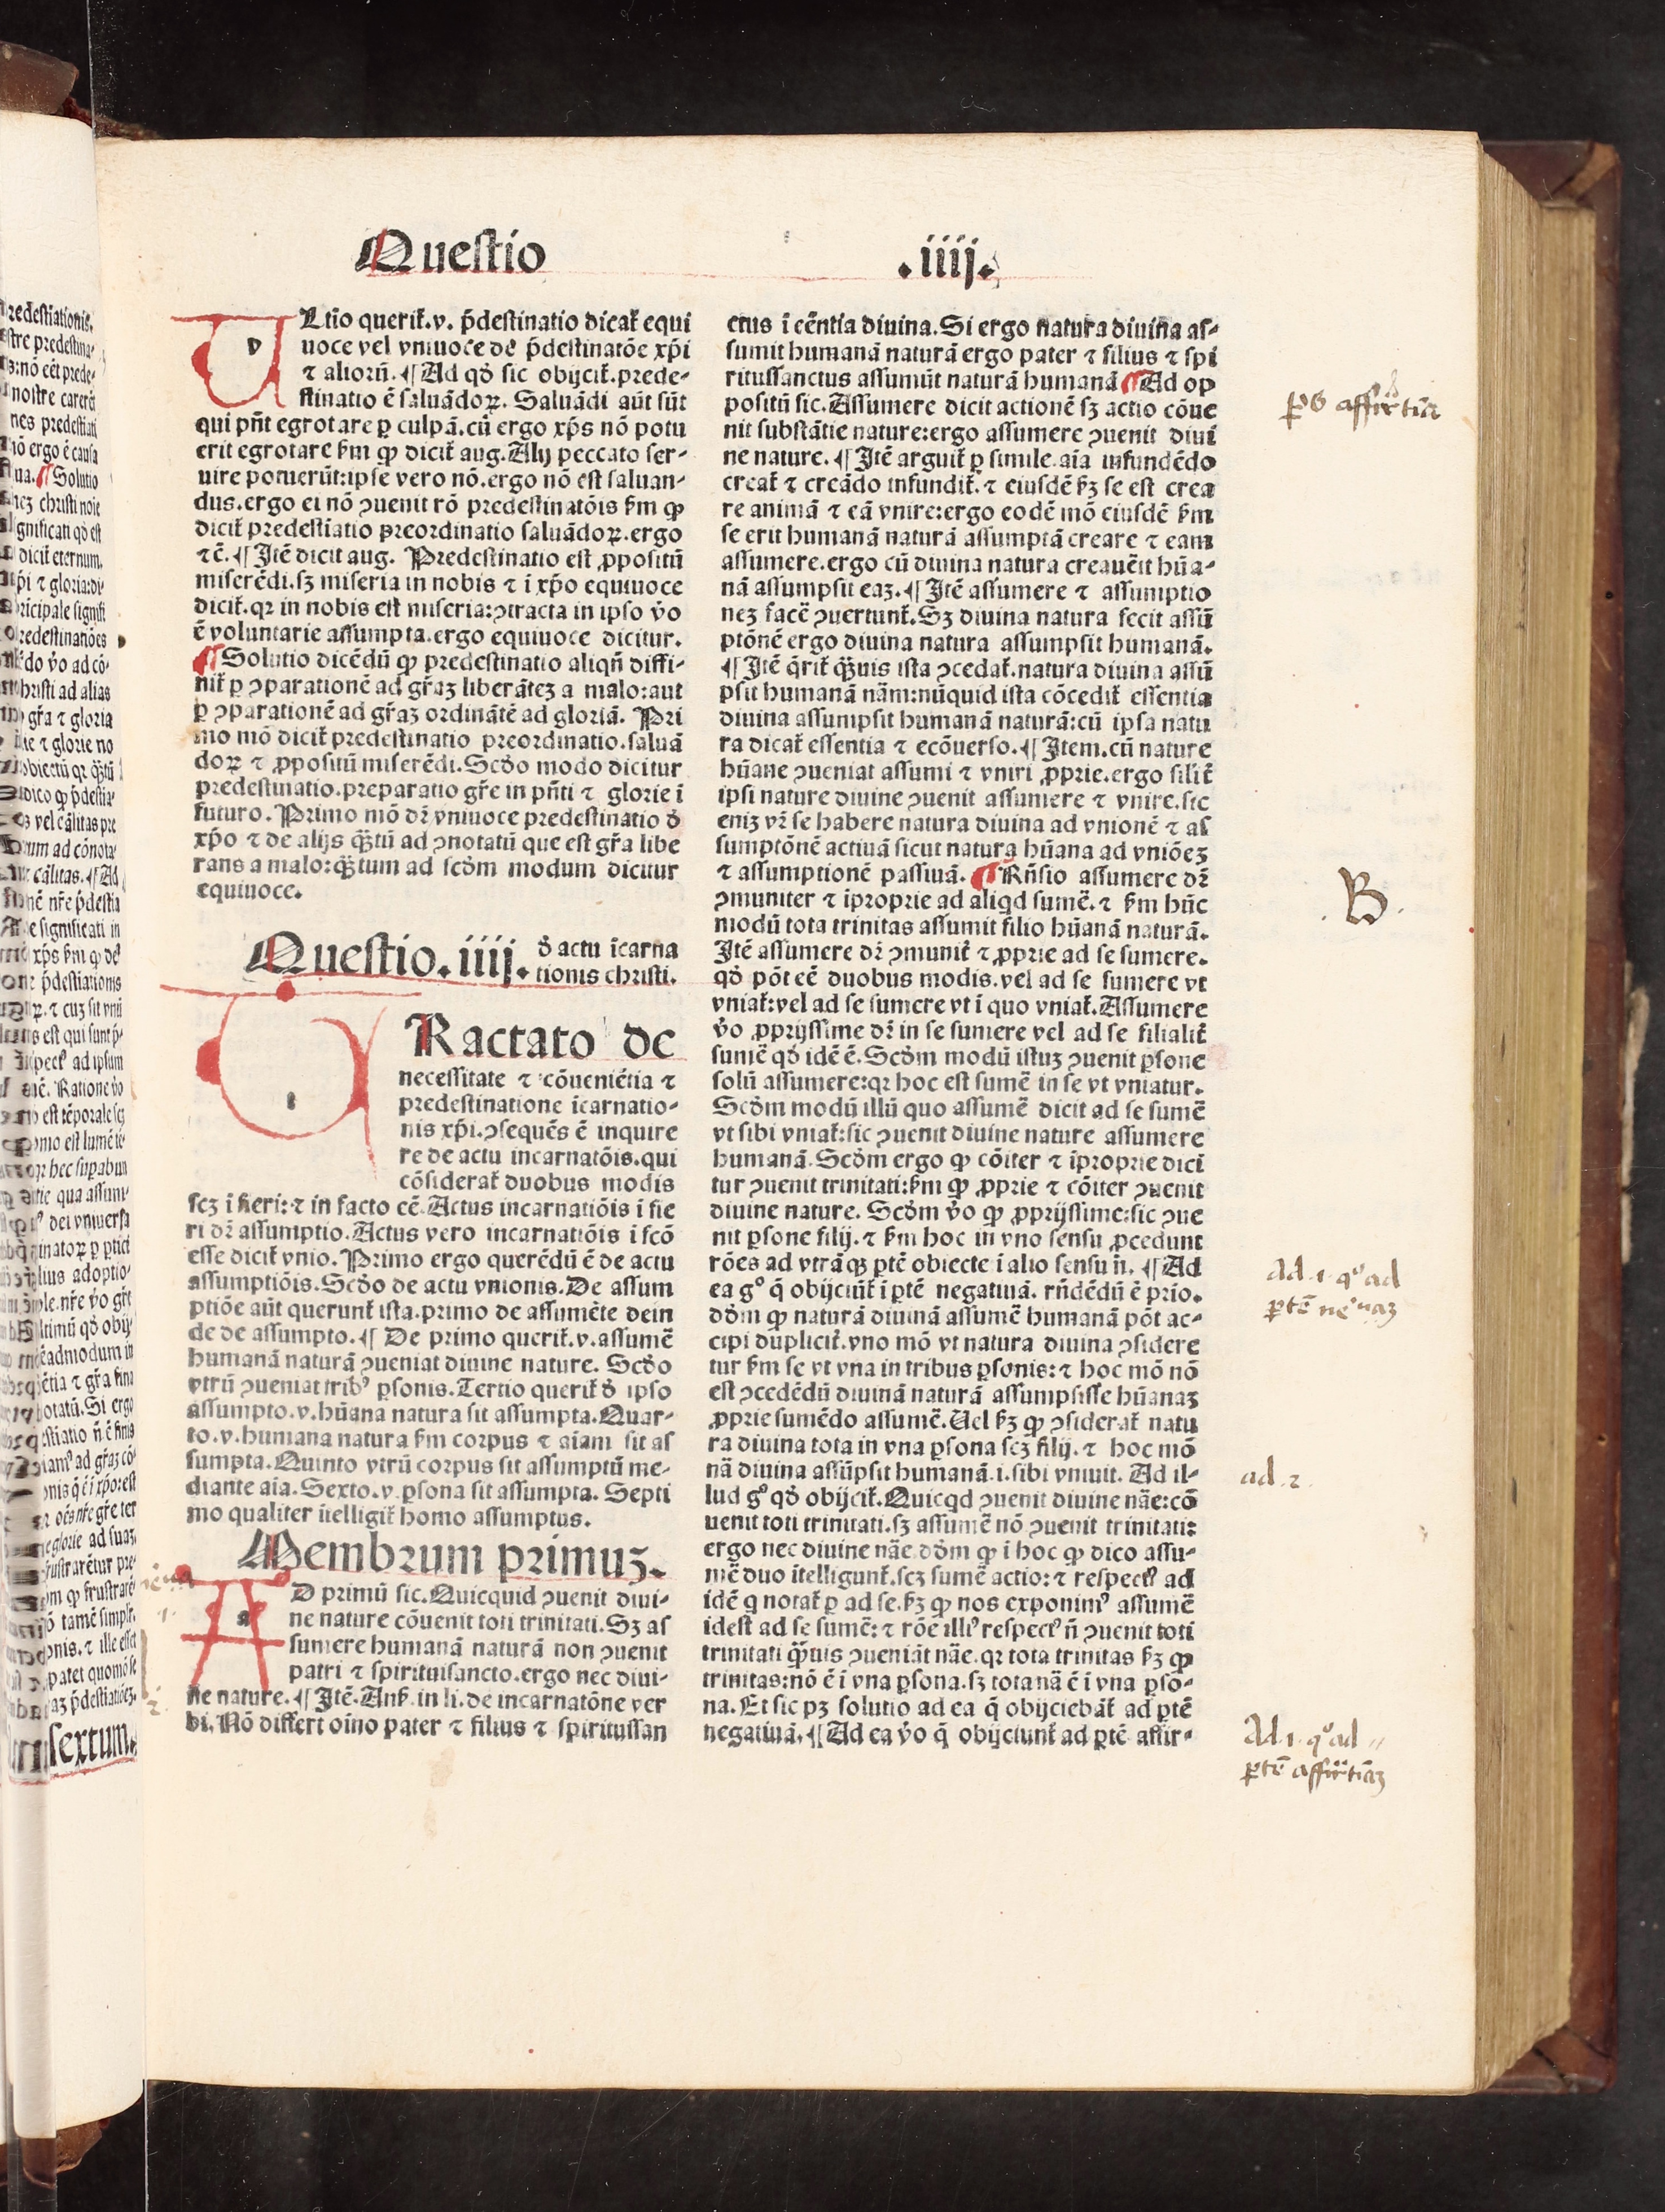 Questio .iiij.
ULtio querit̃.v. p̃destinatio dicat̃ equi
uoce vel vniuoce de p̃destinatõe xp̃i
⁊ aliorũ.¶Ad qđ sic obijcit̃.prede-
stinatio ẽ saluãdoꝝ. Saluãdi aũt sũt
qui pñt egrotare ꝑ culpã.cũ ergo xp̃s nõ potu
erit egrotare ẜm ꝙ dicit̃ aug.Alij peccato ser-
uire potuerũt:ipse vero nõ.ergo nõ est saluan-
dus.ergo ei nõ ꝯuenit rõ predestinatõis ẜm ꝙ
dicit̃ predestĩatio preordinatio saluãdoꝝ.ergo
⁊ẽ.¶Itẽ dicit aug. Predestinatio est ꝓpositũ
miserẽdi.sꝫ miseria in nobis ⁊ i xp̃o equiuoce
dicit̃.qꝛ in nobis est miseria:ꝯtracta in ipso ṽo
ẽ voluntarie assumpta.ergo equiuoce dicitur.
¶Solutio dicẽdũ ꝙ predestinatio aliqñ diffi-
nit̃ ꝑ ꝯparationẽ ad gr̃aꝫ liberãteꝫ a malo:aut
ꝑ ꝯparationẽ ad gr̃aꝫ ordinãtẽ ad gloriã. Pri
mo mõ dicit̃ predestinatio preordinatio.saluã
doꝝ ⁊ ꝓpositũ miserẽdi.Scđo modo dicitur
predestinatio.preparatio gr̃e in pñti ⁊ glorie i
futuro. Primo mõ dr̃ vniuoce predestinatio đ
xp̃o ⁊ de alijs q̃ȝtũ ad ꝯnotatũ que est gr̃a libe
rans a malo:q̃ȝtum ad scđm modum dicitur
equiuoce.
Questio.iiij. đ actu ĩcarna
tionis christi.
TRactato de
necessitate ⁊ cõueniẽtia ⁊
predestinatione ĩcarnatio-
nis xp̃i.ꝯsequẽs ẽ inquire
re de actu incarnatõis.qui
cõsiderat̃ duobus modis
scꝫ i fieri:⁊ in facto eẽ.Actus incarnatiõis i fie
ri dr̃ assumptio.Actus vero incarnatiõis i fcõ
esse dicit̃ vnio.Primo ergo querẽdũ ẽ de actu
assumptiõis.Scđo de actu vnionis.De assum
ptiõe aũt querunt̃ ista.primo de assumẽte dein
de de assumpto.¶ De primo querit̃.v.assumẽ
humanã naturã ꝯueniat diuine nature. Scđo
vtrũ ꝯueniat tribꝰ ꝑsonis.Tertio querit̃ đ ipso
assumpto.v.hũana natura sit assumpta.Quar-
to.v.humana natura ẜm corpus ⁊ aĩam sit as
sumpta.Quinto vtrũ corpus sit assumptũ me-
diante aĩa.Sexto.v.ꝑsona sit assumpta. Septi
mo qualiter ĩtelligit̃ homo assumptus.
Membrum primuꝫ.
AD primũ sic.Quicquid ꝯuenit diui-
ne nature cõuenit toti trinitati.Sꝫ as
sumere humanã naturã non ꝯuenit
patri ⁊ spirituisancto.ergo nec diui-
ne nature.¶Itẽ.Anẜ.in li.de incarnatõne ver
bi.Nõ differt oĩno pater ⁊ filius ⁊ spiritussan
ctus i eẽntia diuina.Si ergo natura diuina as-
sumit humanã naturã ergo pater ⁊ filius ⁊ spi
ritussanctus assumũt naturã humanã ¶Ad op
positũ sic.Assumere dicit actionẽ sꝫ actio cõue
nit substãtie nature:ergo assumere ꝯuenit diui
ne nature.¶Itẽ arguit̃ ꝑ simile.aĩa infundẽdo
creat̃ ⁊ creãdo infundit̃.⁊ eiusdẽ ẜꝫ se est crea
re animã ⁊ eã vnire:ergo eodẽ mõ eiusdẽ ẜm
se erit humanã naturã assumptã creare ⁊ eam
assumere.ergo cũ diuina natura creauẽit hũa-
nã assumpsit eaꝫ.¶Itẽ assumere ⁊ assumptio
neꝫ facẽ ꝯuertunt̃.Sꝫ diuina natura fecit assũ
ptõnẽ ergo diuina natura assumpsit humanã.
¶Itẽ q̃rit̃ q̃ȝuis ista ꝯcedat̃.natura diuina assũ
psit humanã nãm:nũquid ista cõcedit̃ essentia
diuina assumpsit humanã naturã:cũ ipsa natu
ra dicat̃ essentia ⁊ ecõuerso.¶Item.cũ nature
hũane ꝯueniat assumi ⁊ vniri ꝓprie.ergo silit̃
ipsi nature diuine ꝯuenit assumere ⁊ vnire.sic
eniꝫ vr̃ se habere natura diuina ad vnionẽ ⁊ as
sumptõnẽ actiuã sicut natura hũana ad vniõeꝫ
⁊ assumptionẽ passiuã. ¶Rñsio assumere dr̃
ꝯmuniter ⁊ iproprie ad aliqd sumẽ.⁊ ẜm hũc
modũ tota trinitas assumit filio hũanã naturã.
Itẽ assumere dr̃ ꝯmunit̃ ⁊ ꝓprie ad se sumere.
qđ põt eẽ duobus modis.vel ad se sumere vt
vniat̃:vel ad se sumere vt i quo vniat̃.Assumere
ṽo ꝓprijssime dr̃ in se sumere vel ad se filialit̃
sumẽ qđ idẽ ẽ.Scđm modũ istuꝫ ꝯuenit ꝑsone
solũ assumere:qꝛ hoc est sumẽ in se vt vniatur.
Scđm modũ illũ quo assumẽ dicit ad se sumẽ
vt sibi vniat̃:sic ꝯuenit diuine nature assumere
humanã.Scđm ergo ꝙ cõiter ⁊ iproprie dici
tur ꝯuenit trinitati:ẜm ꝙ ꝓprie ⁊ cõiter ꝯuenit
diuine nature. Scđm ṽo ꝙ ꝓprijssime:sic ꝯue
nit ꝑsone filij.⁊ ẜm hoc in vno sensu ꝓcedunt
rões ad vtrãqꝫ ꝑtẽ obiecte i alio sensu ñ.¶Ad
ea gͦ q̃ obijciũt̃ i ꝑtẽ negatiuã. rñdẽdũ ẽ prio.
dđm ꝙ naturã diuinã assumẽ humanã põt ac-
cipi duplicit̃.vno mõ vt natura diuina ꝯsidere
tur ẜm se vt vna in tribus ꝑsonis:⁊ hoc mõ nõ
est ꝯcedẽdũ diuinã naturã assumpsisse hũanaꝫ
ꝓprie sumẽdo assumẽ.Uel ẜꝫ ꝙ ꝯsiderat̃ natu
ra diuina tota in vna ꝑsona scꝫ filij.⁊ hoc mõ
nã diuina assũpsit humanã.i.sibi vniuit. Ad il-
lud gͦ qđ obijcit̃.Quicqd ꝯuenit diuine nãe:cõ
uenit toti trinitati.sꝫ assumẽ nõ ꝯuenit trinitati:
ergo nec diuine nãe.dđm ꝙ i hoc ꝙ dico assu-
mẽ duo ĩtelligunt̃.scꝫ sumẽ actio:⁊ respectꝰ ad
idẽ q notat̃ ꝑ ad se.ẜꝫ ꝙ nos exponimꝰ assumẽ
idest ad se sumẽ:⁊ rõe illiꝰ respectꝰ ñ ꝯuenit toti
trinitati q̃ȝuis ꝯueniãt nãe.qꝛ tota trinitas ẜꝫ ꝙ
trinitas:nõ ẽ i vna ꝑsona.sꝫ tota nã ẽ i vna ꝑso-
na.Et sic pꝫ solutio ad ea q̃ obijciebãt̃ ad ꝑtẽ
negatiuã.¶Ad ea ṽo q̃ obijciunt̃ ad ꝑtẽ affir-
.B.
ad .1. qͦ ad
ꝑtẽ
ad .2.
Ad .1. qͦ ad
ꝑtẽ
sextum.